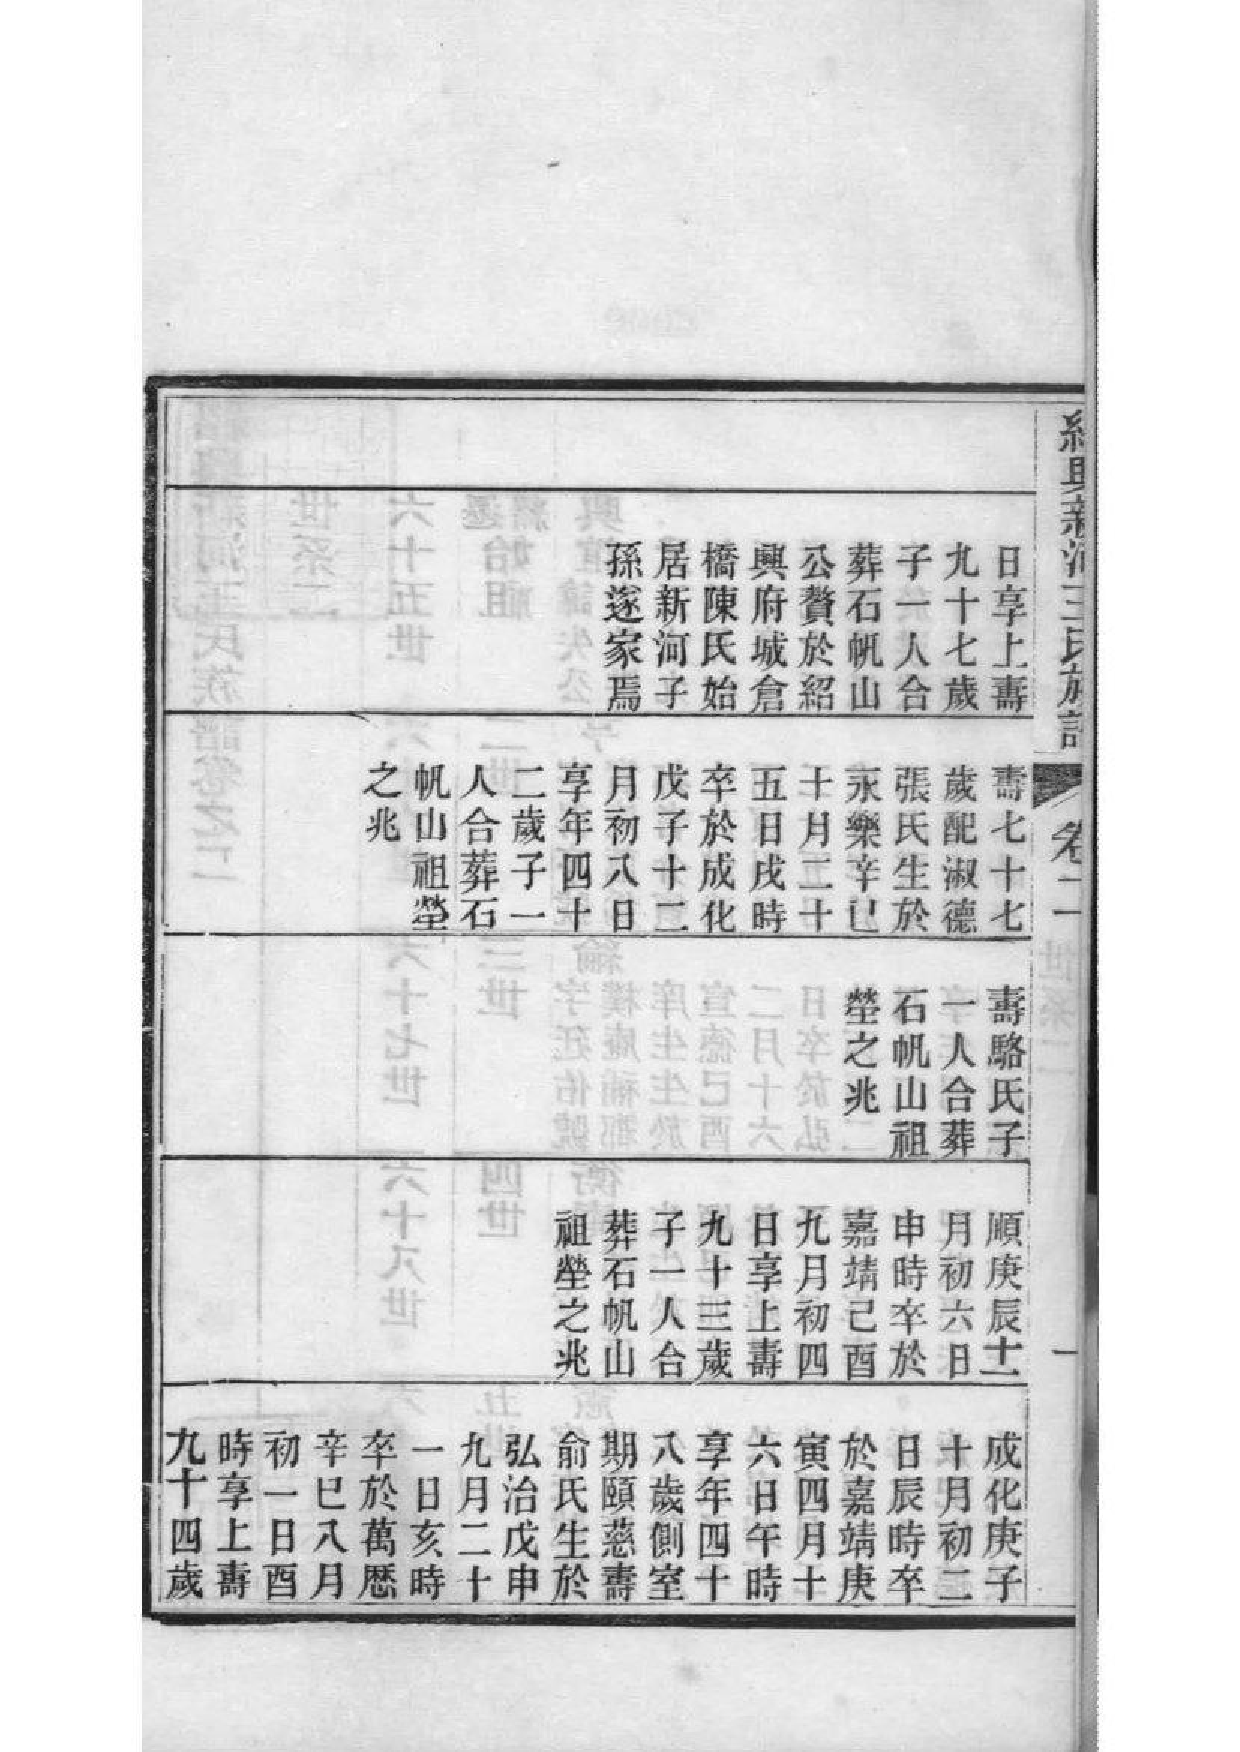 紹興新河王氏族譜
卷二
一
日享上壽
九十七歲
子一人合
葬石帆山
公贅於紹
興府城倉
橋陳氏始
居新河子
孫遂家焉
壽七十七
歲配淑德
張氏生於
永樂辛巳
十月二十
五日戌時
卒於成化
戊子十二
月初八日
享年四十
二歲子一
人合葬石
帆山祖塋
之兆
壽駱氏子
一人合葬
石帆山祖
塋之兆
順庚辰十一
月初六日
申時卒於
嘉靖己酉
九月初四
日享上壽
九十三歲
子一人合
葬石帆山
祖塋之兆
成化庚子
十月初二
日辰時卒
於嘉靖庚
寅四月十
六日午時
享年四十
八歲側室
期頤慈壽
俞氏生於
弘治戊申
九月二十
一日亥時
卒於萬歷
辛巳八月
初一日酉
時享上壽
九十四歲